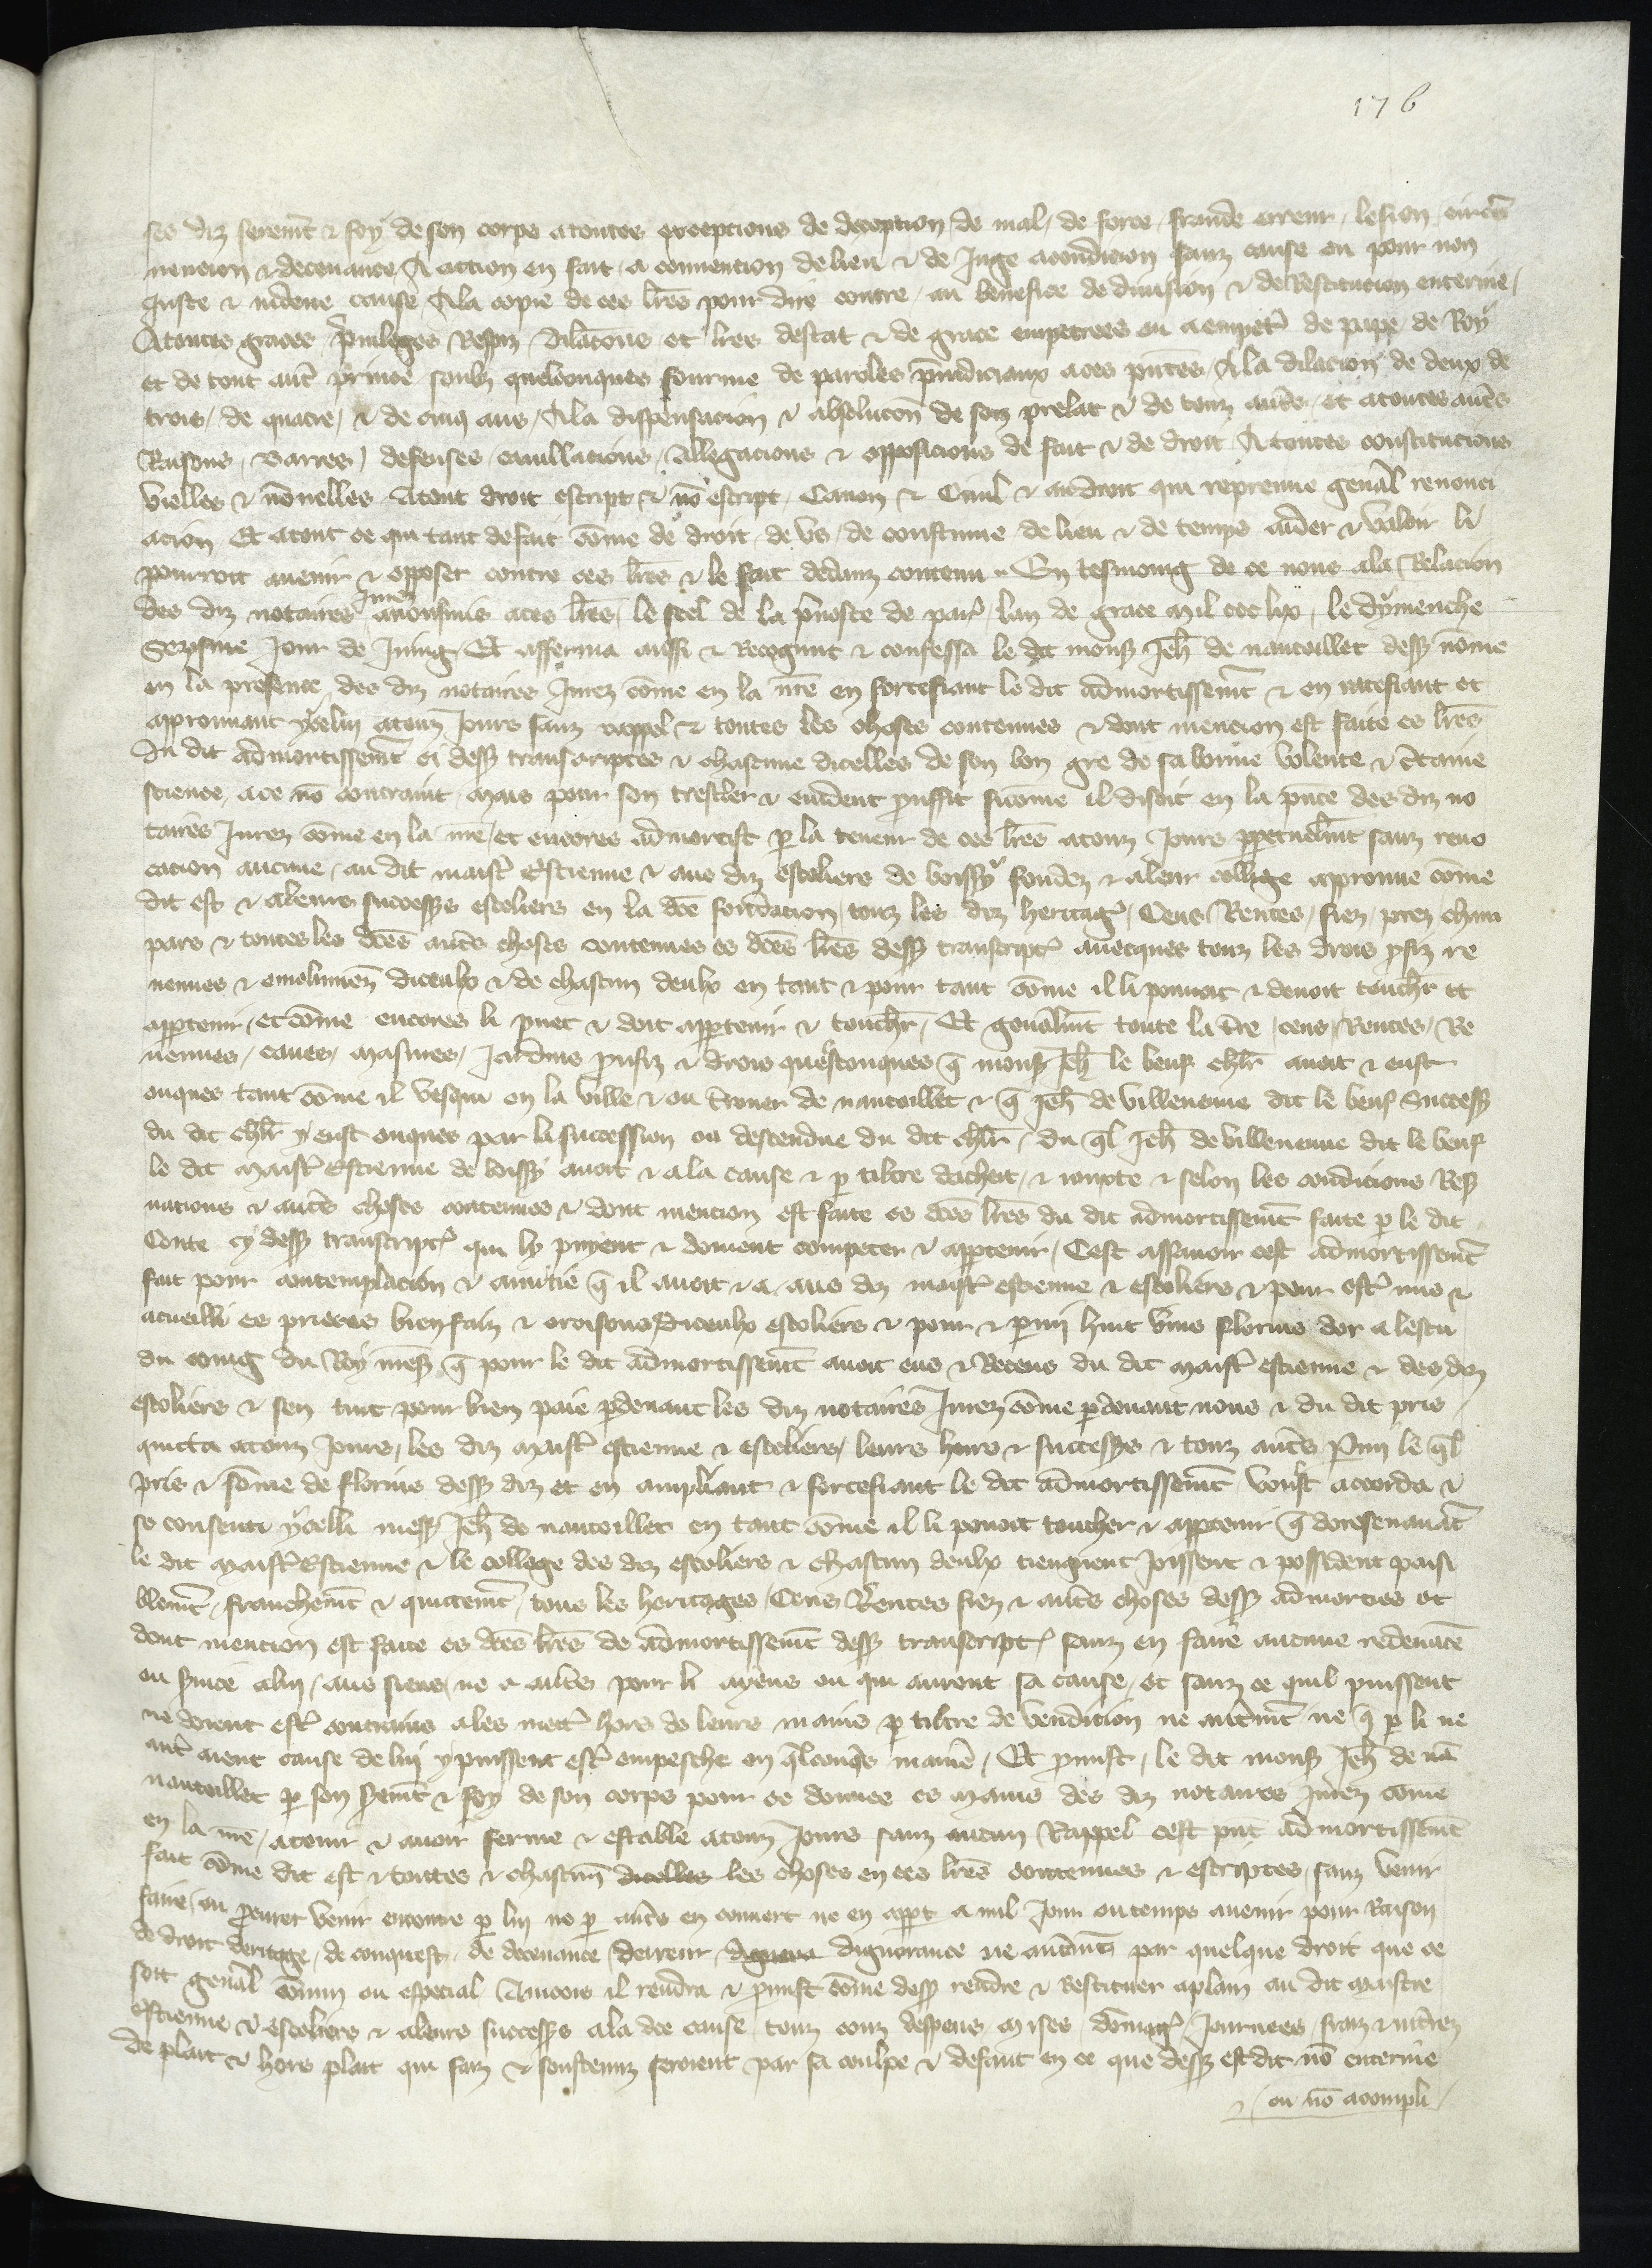 176
ses diz serem̃t & foy de son corps a toutes excepcions de decepcion de mal, de force, fraude erreur, lesion, circũ
uencion & deceuance, A action en fait, a conuencion de lieu & de Juge a condicion sanz cause ou pour non
juste & indeue cause, A la copie de ces l̃res pour dire contre, au benefice de diuision & de Restitucion enterine,
A toutes graces p̃uileges Respiz, dilac̃ons et l̃res destat & de grace empetrees ou a empet̃r de pape de Roy
et de tout aut̃ prince soubz quelconques fourme de paroles p̃iudiciaux a ces p̃ntes, A la dilacion de deux de
trois, de quatre, & de cinq ans, A la dispensacion & absoluc̃on de son prelat & de touz aut̃s, et a toutes aut̃s
Raisons, Barres, defenses, cauillacions, Allegacions & opposicions de fait & de droit A toutes constitucions
vielles & nouuelles A tout droit escript & nõ escript, Canon & Ciuil & au droit qui reprenne geñal renonci
acion Et a tout ce qui tant de fait cõme de droit, de us, de coustume de lieu & de temps aider & valoir li
pourroit auenir & opposer contre ces l̃res & le fait dedanz contenu. En tesmoing de ce nous a la Relacion
des diz notaires jurez auons mis a ces l̃res, le seel de la p̃uoste de par̃, lan de grace mil ccc lix, le dymenche
Sezisme Jour de Juing, Et afferma aussi & Recognut & confessa le dit mons̃ Jeh̃ de nantoillet dess̃ nõme
en la presence des diz notaires Jurez cõme en la nr̃e en fortefiant le dit admortissem̃t & en ratefiant et
aprouuant ycelui a touz Jours sanz rappel & toutes les choses contenues & dont mencion est faite es l̃res
du dit admortissem̃t ci dess̃ transcriptes & chascune dicelles de son bon gre de sa bonne volente & c̃taine
science, a ce nõ contraint, Mais pour son tresclrer & euident prouffit sicõme il disoit en la p̃nce des diz no
taires Jurez cõme en la nr̃e, et encores admortist p la teneur de ces l̃res a touz Jours ppetuelm̃t sanz reuo
cacion aucune, au dit maist̃ Estienne & aus diz escoliers de boissy fondez & a leur college approuue cõme
dit est & a leurs success̃s escoliers en la dc̃e fondacion, touz les diz heritag̃, Cens Rentes, fiez, prez, cham
pars & toutes les dc̃es aut̃s choses contenues es dc̃es l̃res dess̃ transcript̃ auecques touz les drois pfiz re
uenues & emolumens diceulx & de chascun deulx en tant & pour tant cõme il li pouuoit & deuoit touch̃r et
appartenir, et cõme encores li puet & doit appartenir & touch̃r, Et geñalm̃t toute la t̃re, cens, Rentes, Re
uenues, caues, Masures, Jardins prufiz & drois quelconques q̃ mons̃ Jeh̃ le beuf chl̃r auoit & eust
onques tant cõme il vesqui en la ville & ou t̃rouer de nantoillet & q̃ Jeh̃ de villeneuue dit le beuf Success̃
du dit chl̃r y eust onques par la succession ou descendue du dit chl̃r, du q̃l Jeh̃ de villeneuue dit le beuf
le dit Maist̃ Estienne de boissy auoit & a la cause & p tiltre dachat, & iouxte & selon les condicions Res̃
uacions & aut̃s choses contenues & dont mencion est faite es dc̃es l̃res du dit admortissem̃t faite p le dit
Conte cy dess̃ transcript̃ qui ly puyent & doiuent competer & appartenir, Cest assauoir cest admortissem̃t
fait pour contemplacion & amitie q̃ il auoit & a aus diz maist̃ estienne & escoliers & pour est̃ mis &
acueilli es prieres bienfaiz & oroisons diceulx escoliers & pour & parmi huit vins florins dor a lescu
du coing du Roy mess̃ q̃ pour le dit admortissem̃t auoit eus & Receus du dit Maist̃ estienne & des diz
escoliers & sen tint pour bien paie p̃deuant les diz notaires Jurez cõme p̃deuant nous & du dit pris
quicta a touz Jours, les diz Maist̃ estienne & escoliers, leurs hoirs & success̃s & touz aut̃s Parmi le q̃l
pris & sõme de florins dess̃ diz et en ampliant & fortefiant le dit admortissem̃t voulst accorda &
se consenti ycelli mess̃ Jeh̃ de nantoillet en tant cõme il li pouoit toucher & appartenir q̃ doresenauãt
le dit Maist̃ Estienne & le college des diz escoliers & chascun deulx tiengnent Joissent & possident paisi
blem̃t, franchem̃t & quittem̃t, tous les heritages, Cens Rentes fiez & aut̃s choses dess̃ admorties et
dont mencion est faite es dc̃es l̃res de admortissem̃t dess̃ transcript̃ sanz en faire aucune redeuãce
ou s̃uice a lui, aus siens, ne a aut̃s pour li ayens ou qui auront sa cause, et sanz ce quil puissent
ne doient est̃ contrains a les mett̃ hors de leurs mains p tiltre de vendicion ne aut̃m̃t ne q̃ p li ne
aut̃ aient cause de lui y puissent est̃ empesche en q̃lconq̃s manie᷑, Et promist, le dit mons̃ Jeh̃ de nã
nantoillet p son s̃em̃t & foy de son corps pour ce donnes es Mains des diz notaires Jurez cõme
en la nr̃e, a tenir & auoir ferme & estable a touz Jours sanz aucun Rappel cest p̃nt admortissem̃t
fait cõme dit est & toutes & chascun̄ dicelles les choses en ces l̃res contenues & escriptes, sanz venir
faire, ou procurer venir encontre p lui ne p aut̃s en couuert ne en appt a nul Jour ou temps auenir pour Raison
de droit deritage, de conquest, de deceuance, derreur, dignorance ne aut̃m̃t par quelque droit que ce
soit geñal cõmun ou especial Aincois il rendra & promist cõme dess̃ rendre & Restituer a plain au dit Maistre
Estienne & escoliers & a leurs success̃s a la dc̃e cause touz couz despens, mises, dõmag̃, Journees, fraiz & int̃rez
de plait & hors plait qui faiz & soustenuz seroient par sa coulpe & defaut en ce que dess̃ est dit nõ enterine
& ou nõ acompli